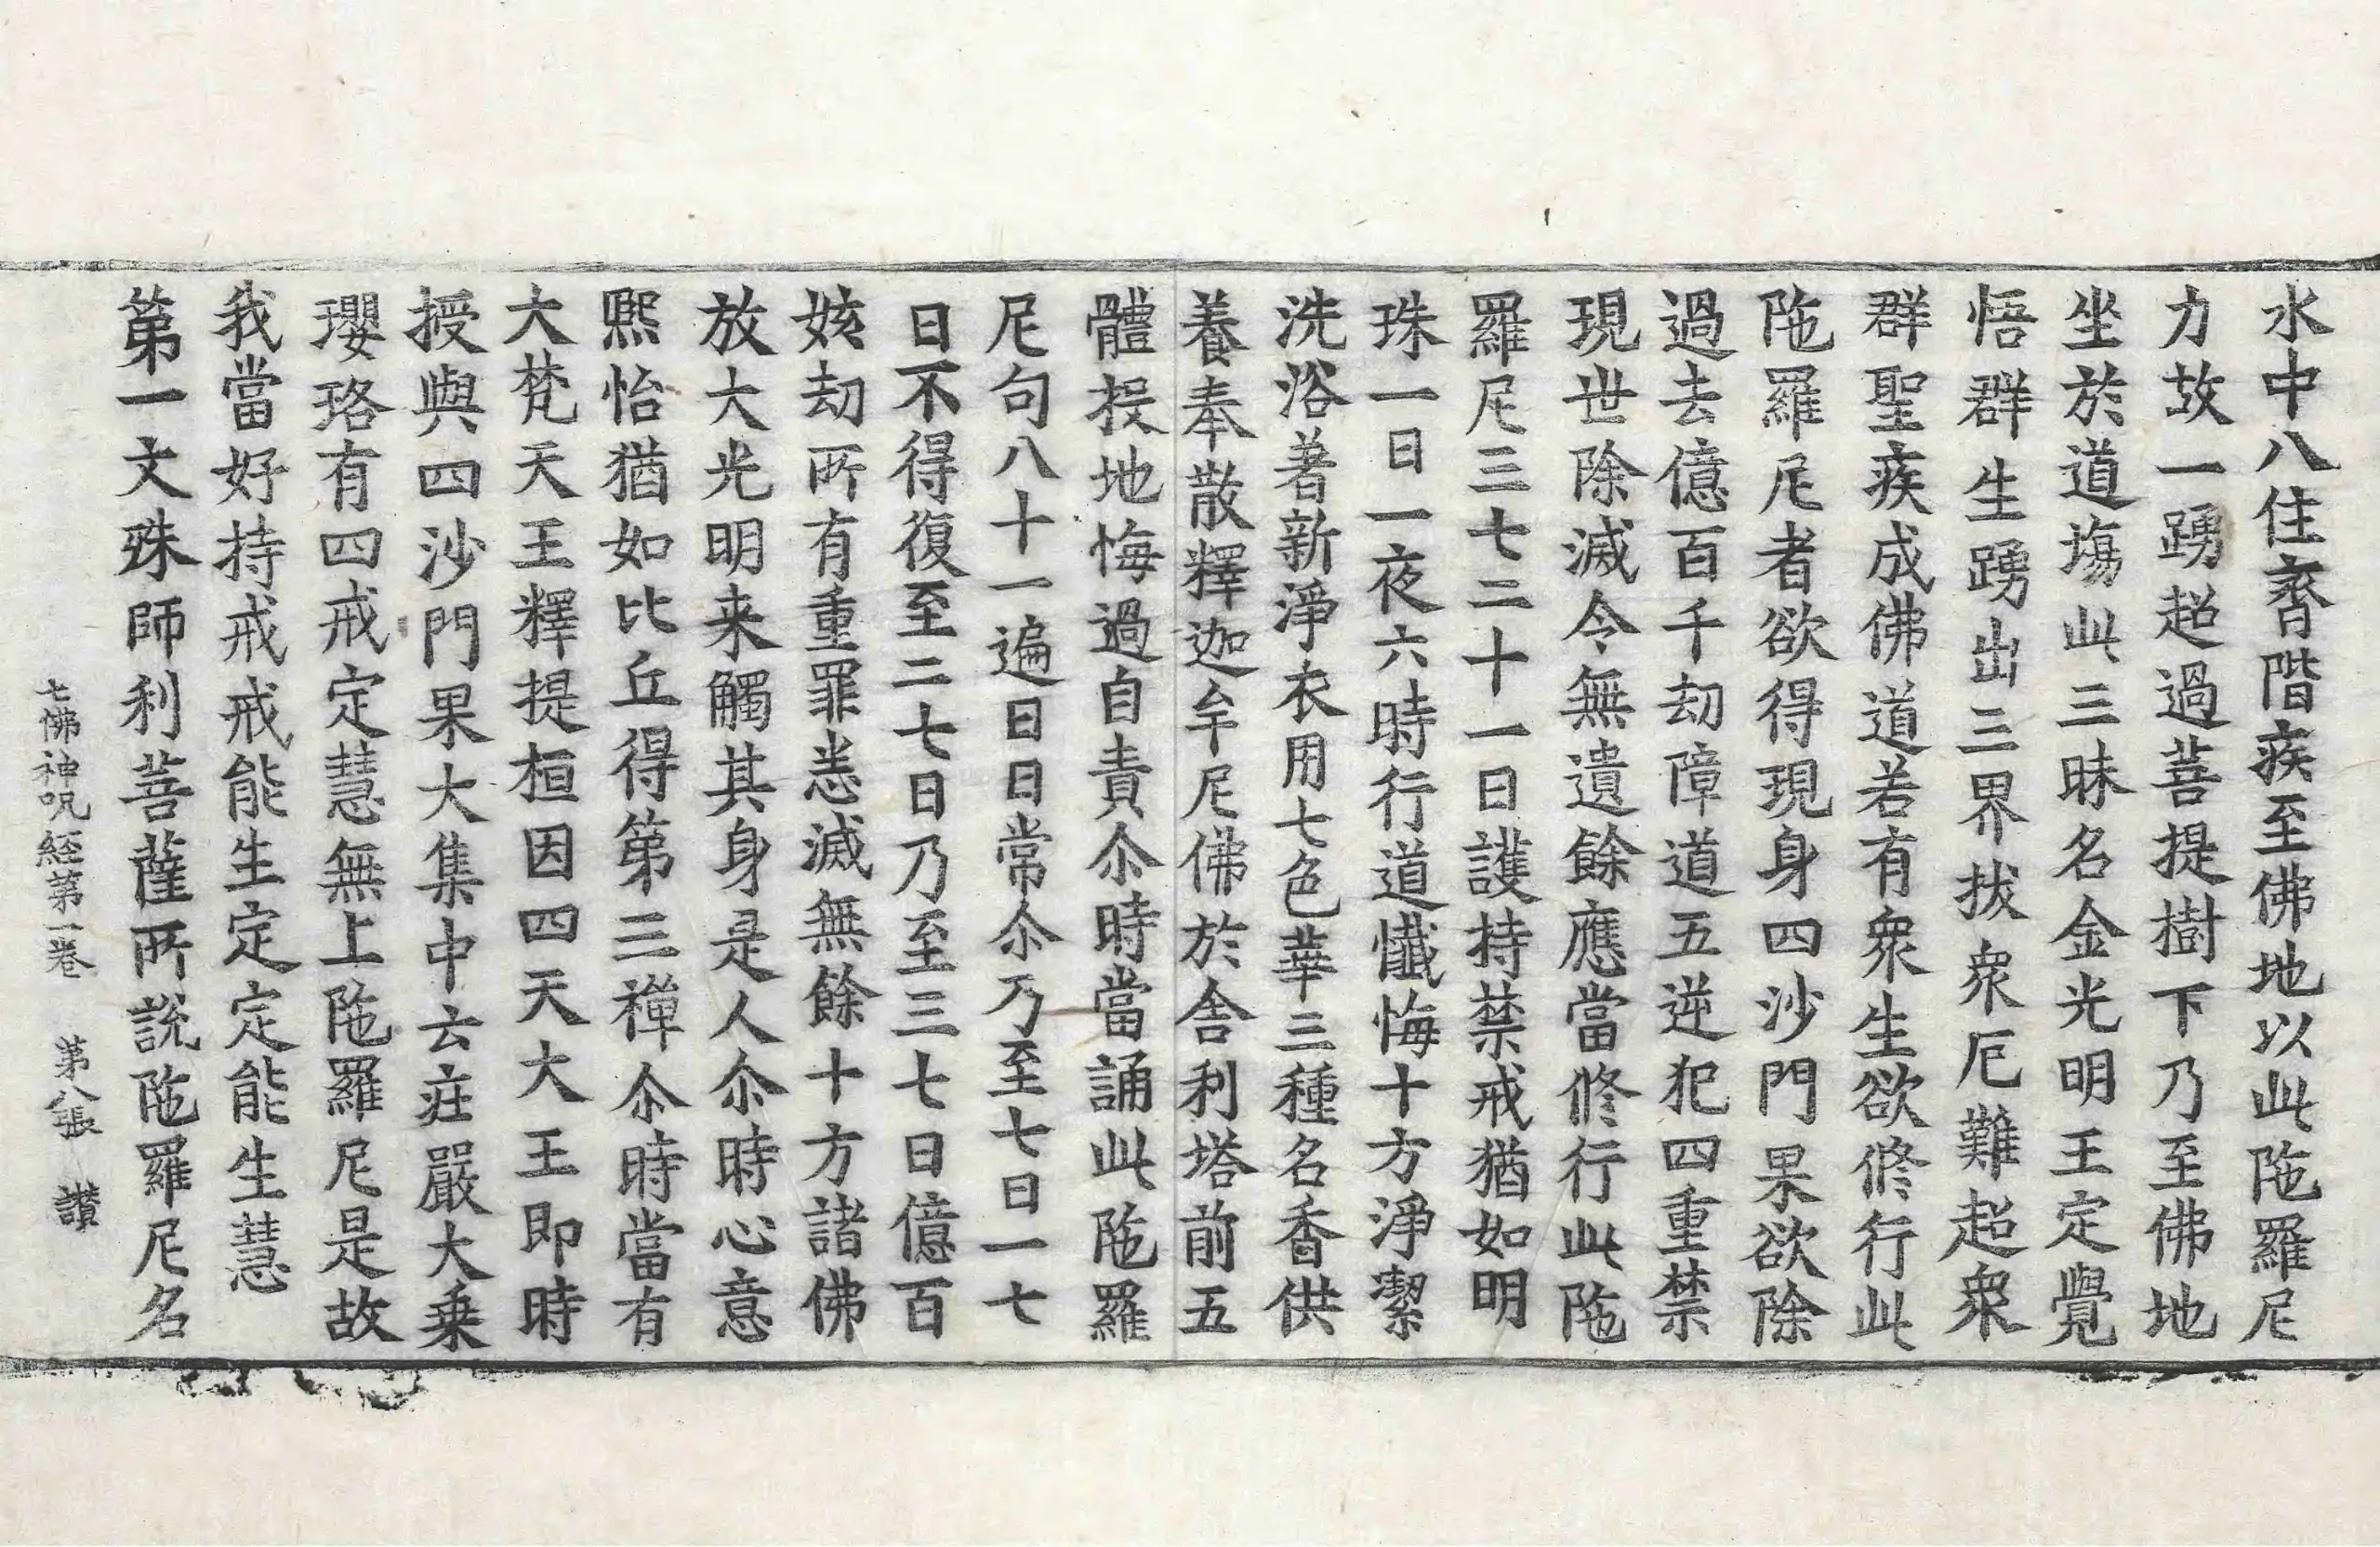 水中八住齊階疾至佛地以此陁羅尼
力故一踴超過菩提樹下乃至佛地
坐於道塲此三昧名金光明王定覺
悟群生踴出三界拔衆厄難超衆
群聖疾成佛道若有衆生欲修行此
陁羅尼者欲得現身四沙門果欲除
過去億百千劫障道五逆犯四重禁
現世除滅令無遺餘應當修行此陁
羅尼三七二十一日護持禁戒猶如明
珠一日一夜六時行道懺悔十方淨潔
洗浴著新淨衣用七色華三種名香供
養奉散釋迦牟尼佛於舍利塔前五
體投地悔過自責尒時當誦此陁羅
尼句八十一遍日日常尒乃至七日一七
日不得復至二七日乃至三七日億百
姟劫所有重罪悉滅無餘十方諸佛
放大光明来觸其身是人尒時心意
熈怡猶如比丘得第三禪尒時當有
大梵天王釋提桓因四天大王即時
授與四沙門果大集中云莊嚴大乗
瓔珞有四戒定慧無上陁羅尼是故
我當好持戒戒能生定定能生慧
第一文殊師利菩薩所說陁羅尼名
七佛神呪経第一卷　第八張　讃